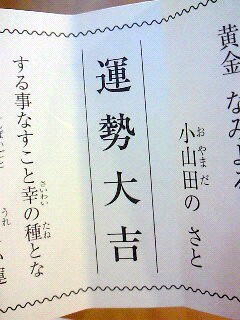 黄金 なみよる
小山田の さと
おやまだ
運勢大吉
する事なすこと幸の種とな
さいわい たね
うれ